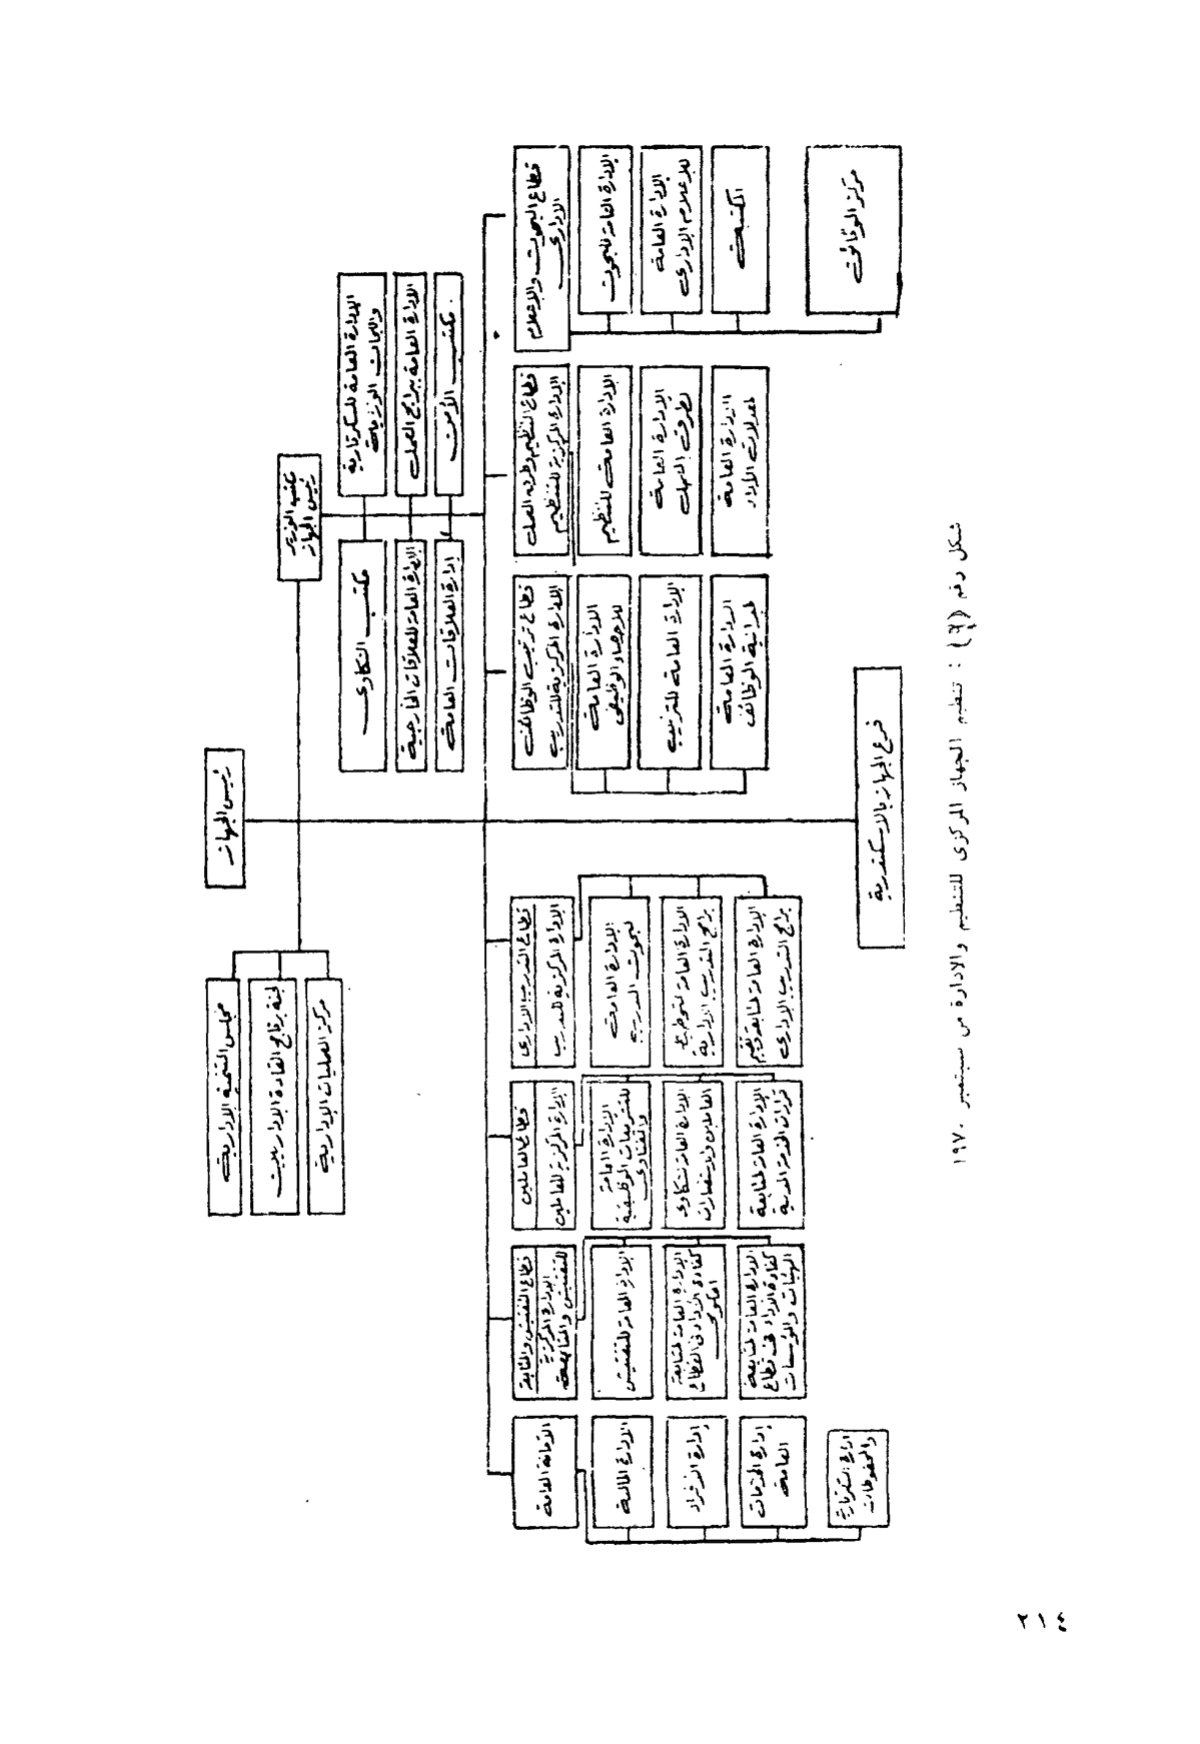 رئيس الجهاز
مكتب الوزير
رئيس الجهاز
مجلس التنمية الإدارية
لجنة برنامج القادة الإداريين
مركز العمليات الإدارية
الإدارة العامة للسكرتارية
واللجان الوزارية
الإدارة العامة لبرامج العمل
مكتب الأمن
مكتب الشكاوى
الإدارة العامة للعلاقات الخارجية
إدارة العلاقات العامة
قطاع البحوث والإعلام
الإدارى
الإدارة العامة للبحوث
الإدارة العامة
للإعلام الإدارى
المكتبة
مركز الوثائق
قطاع التنظيم وطرق العمل
الإدارة المركزية للتنظيم
الإدارة العامة للتنظيم
الإدارة العامة
لطرق العمل
الإدارة العامة
لمعدلات الأداء
قطاع ترتيب الوظائف
الإدارة المركزية للتدريب
الإدارة العامة
للإحصاء الوظيفى
الإدارة العامة للترتيب
الإدارة العامة
لميزانية الوظائف
قطاع التدريب الإدارى
الإدارة المركزية للتدريب
الإدارة العامة
لبحوث التدريب
الإدارة العامة لتخطيط
برامج التدريب الإدارية
الإدارة العامة لمتابعة وتقييم
برامج التدريب الإدارى
قطاع العاملين
الإدارة المركزية للعاملين
الإدارة العامة
للتشريعات الوظيفية
والفتاوى
الإدارة العامة لشكاوى
العاملين والاستفسارات
الإدارة العامة لمتابعة
قرارات الخدمة المدنية
قطاع التفتيش والمتابعة
الإدارة المركزية
للتفتيش والمتابعة
الإدارة العامة للتفتيش
الإدارة العامة لمتابعة
كفاءة الأداء فى القطاع
الحكومى
الإدارة العامة لمتابعة
كفاءة الأداء فى قطاع
الهيئات والمؤسسات
الأمانة العامة
الإدارة المالية
إدارة الأفراد
إدارة الخدمات
العامة
إدارة السكرتارية
والمحفوظات
فرع الجهاز بالاسكندرية
شكل رقم (٦) : تنظيم الجهاز المركزى للتنظيم والادارة من سبتمبر ١٩٧٠
٢١٤